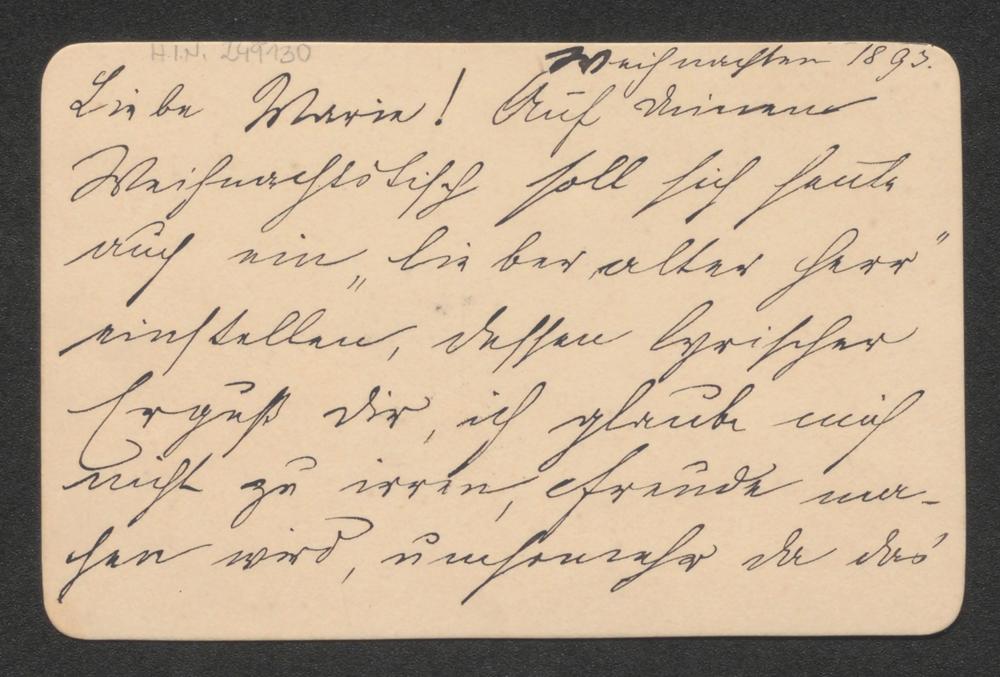 H.I.N. 249130
Weihnachten 1893.
Liebe Marie! Auf deinem
Weihnachtstisch soll sich heute
auch ein „lieber alter Herr"
einstellen, dessen lyrischer
Erguß dir, ich glaube mich
nicht zu irren, Freude ma-
chen wird, umsomehr da das